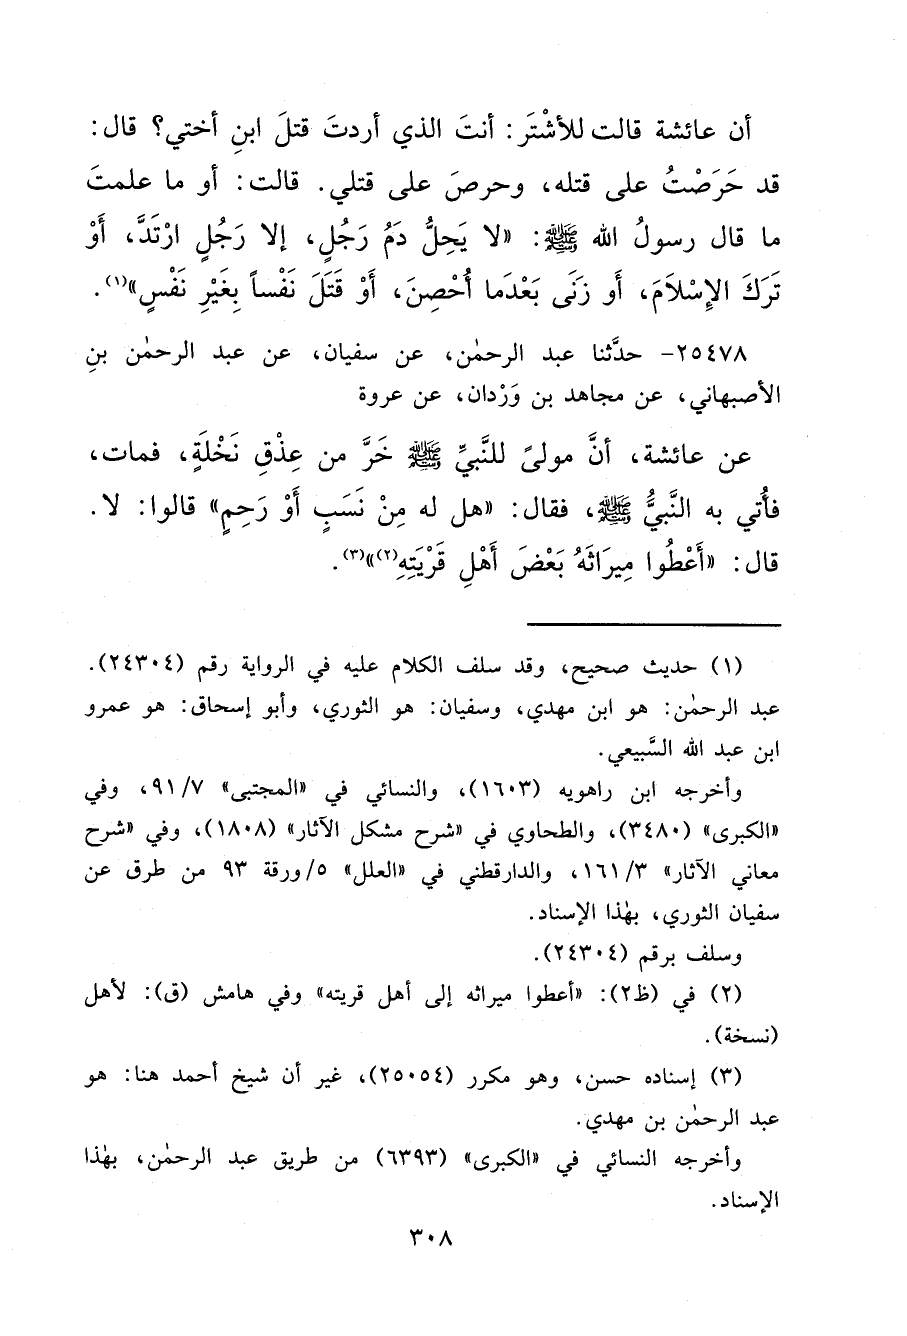 أن عائشة قالت للأشْتَر: أنتَ الذي أردتَ قتلَ ابنِ أختي؟ قال:
قد حَرَصْتُ على قتله، وحرصَ على قتلي. قالت: أو ما علمتَ
ما قال رسولُ الله ﷺ: «لا يَحِلُّ دَمُ رَجُلٍ، إلا رَجُلٍ ارْتَدَّ، أَوْ
تَرَكَ الإِسْلَامَ، أَو زَنَى بَعْدَما أُحْصِنَ، أَوْ قَتَلَ نَفْساً بِغَيْرِ نَفْسٍ»(١).
٢٥٤٧٨- حدَّثنا عبد الرحمٰن، عن سفيان، عن عبد الرحمٰن بنِ
الأصبهاني، عن مجاهد بن وَرْدان، عن عروة
عن عائشة، أنَّ مولىً للنَّبيِّ ﷺ خَرَّ من عِذْقِ نَخْلَةٍ، فمات،
فأُتي به النَّبيُّ ﷺ، فقال: «هل له مِنْ نَسَبٍ أَوْ رَحِمٍ» قالوا: لا.
قال: «أَعْطُوا مِيرَاثَهُ بَعْضَ أَهْلِ قَرْيَتِهِ(٢)»(٣).
(١) حديث صحيح، وقد سلف الكلام عليه في الرواية رقم (٢٤٣٠٤).
عبد الرحمٰن: هو ابن مهدي، وسفيان: هو الثوري، وأبو إسحاق: هو عمرو
ابن عبد الله السَّبيعي.
وأخرجه ابن راهويه (١٦٠٣)، والنسائي في «المجتبى» ٩١/٧، وفي
«الكبرى» (٣٤٨٠)، والطحاوي في «شرح مشكل الآثار» (١٨٠٨)، وفي «شرح
معاني الآثار» ١٦١/٣، والدارقطني في «العلل» ٥/ورقة ٩٣ من طرق عن
سفيان الثوري، بهٰذا الإسناد.
وسلف برقم (٢٤٣٠٤).
(٢) في (ظ٢): «أعطوا ميراثه إلى أهل قريته» وفي هامش (ق): لأهل
(نسخة).
(٣) إسناده حسن، وهو مكرر (٢٥٠٥٤)، غير أن شيخ أحمد هنا: هو
عبد الرحمٰن بن مهدي.
وأخرجه النسائي في «الكبرى» (٦٣٩٣) من طريق عبد الرحمٰن، بهٰذا
الإسناد.
٣٠٨